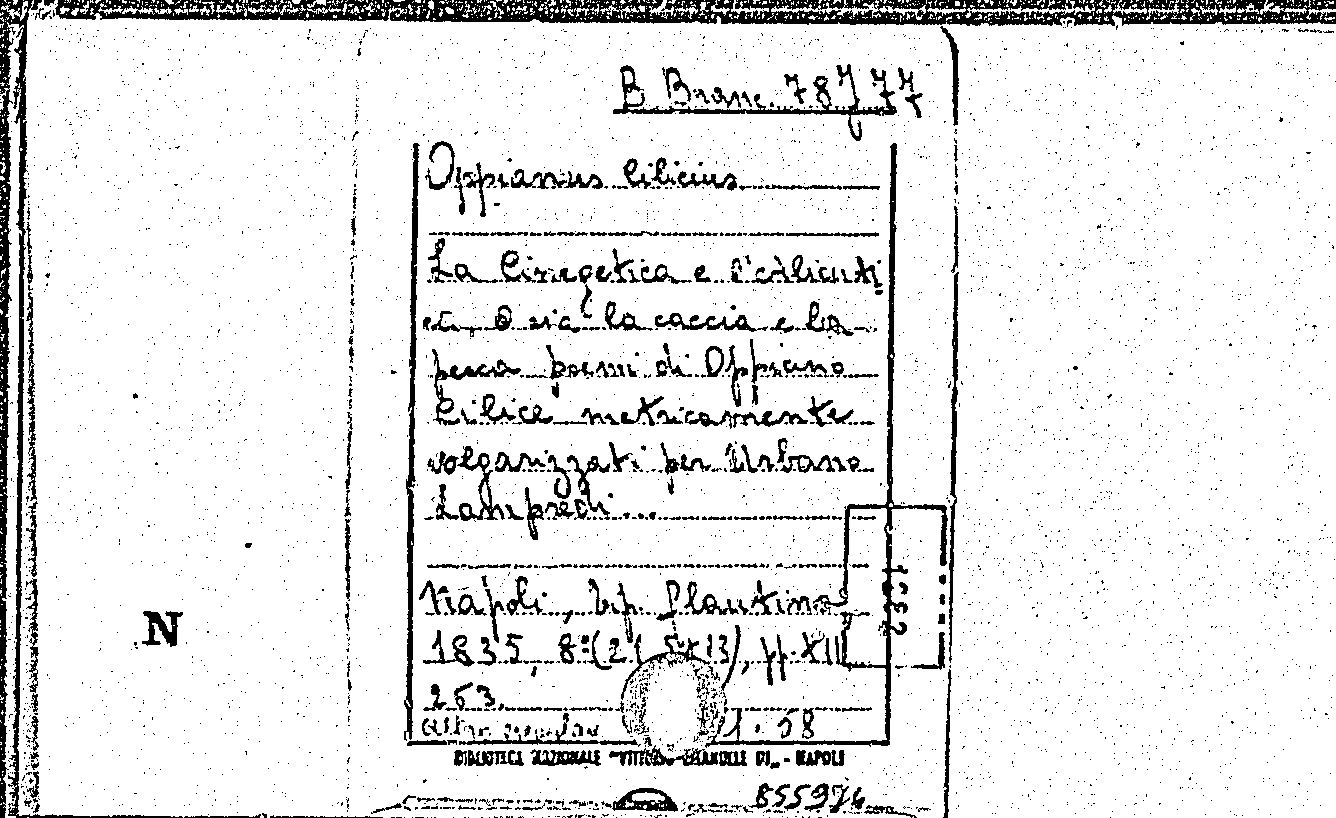 B Branc. 78J77
Oppianus Cilicius
La Cinegetica e l'Alieuti
ca, o sia la caccia e la
pesca poemi di Oppiano
Cilice metricamente
volgarizzati per Urbano
Lampredi...
Napoli, tip. Plautina
1835, 8° (21,5x13), pp. XII
253.
1.58
BIBLIOTECA NAZIONALE "VITTORIO EMANUELE III" - NAPOLI
855976
N
1832